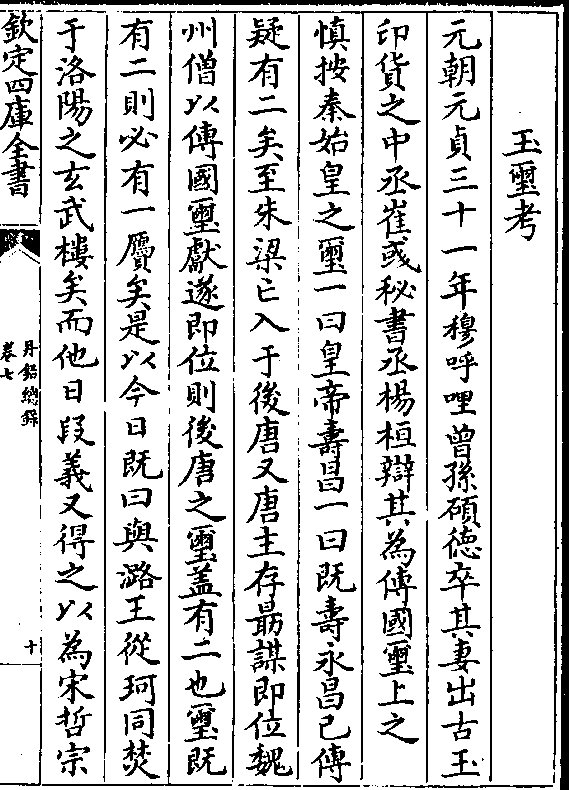 玉璽考
元朝元貞三十一年穆呼哩曾孫碩德卒其妻出古玉
印貨之中丞崔彧秘書丞楊桓辯其為傳國璽上之
慎按秦始皇之璽一曰皇帝壽昌一曰既壽永昌已傳
疑有二矣至朱梁亡入于後唐又唐主存勗謀即位魏
州僧以傳國璽獻遂即位則後唐之璽蓋有二也璽既
有二則必有一贗矣是以今日既曰與潞王從珂同焚
于洛陽之玄武樓矣而他日段義又得之以為宋哲宗
欽定四庫全書
丹鉛總録
卷七
十